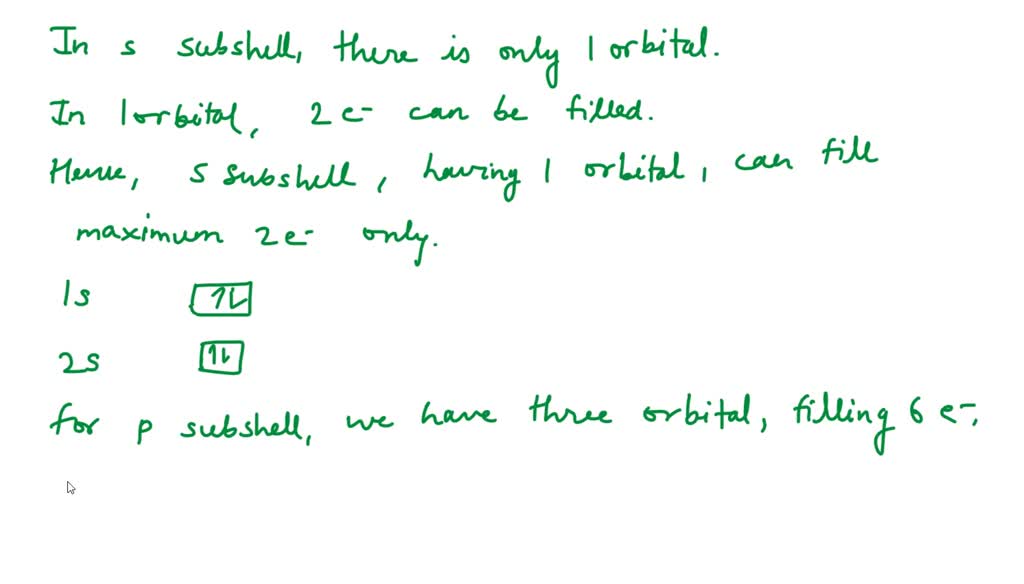 In s subshell, there is only 1 orbital.
In 1 orbital, 2 e⁻ can be filled.
Hence, s subshell, having 1 orbital, can fill
maximum 2e⁻ only.
1s ↿⇂
2s ↿⇂
for p subshell, we have three orbital, filling 6 e⁻.